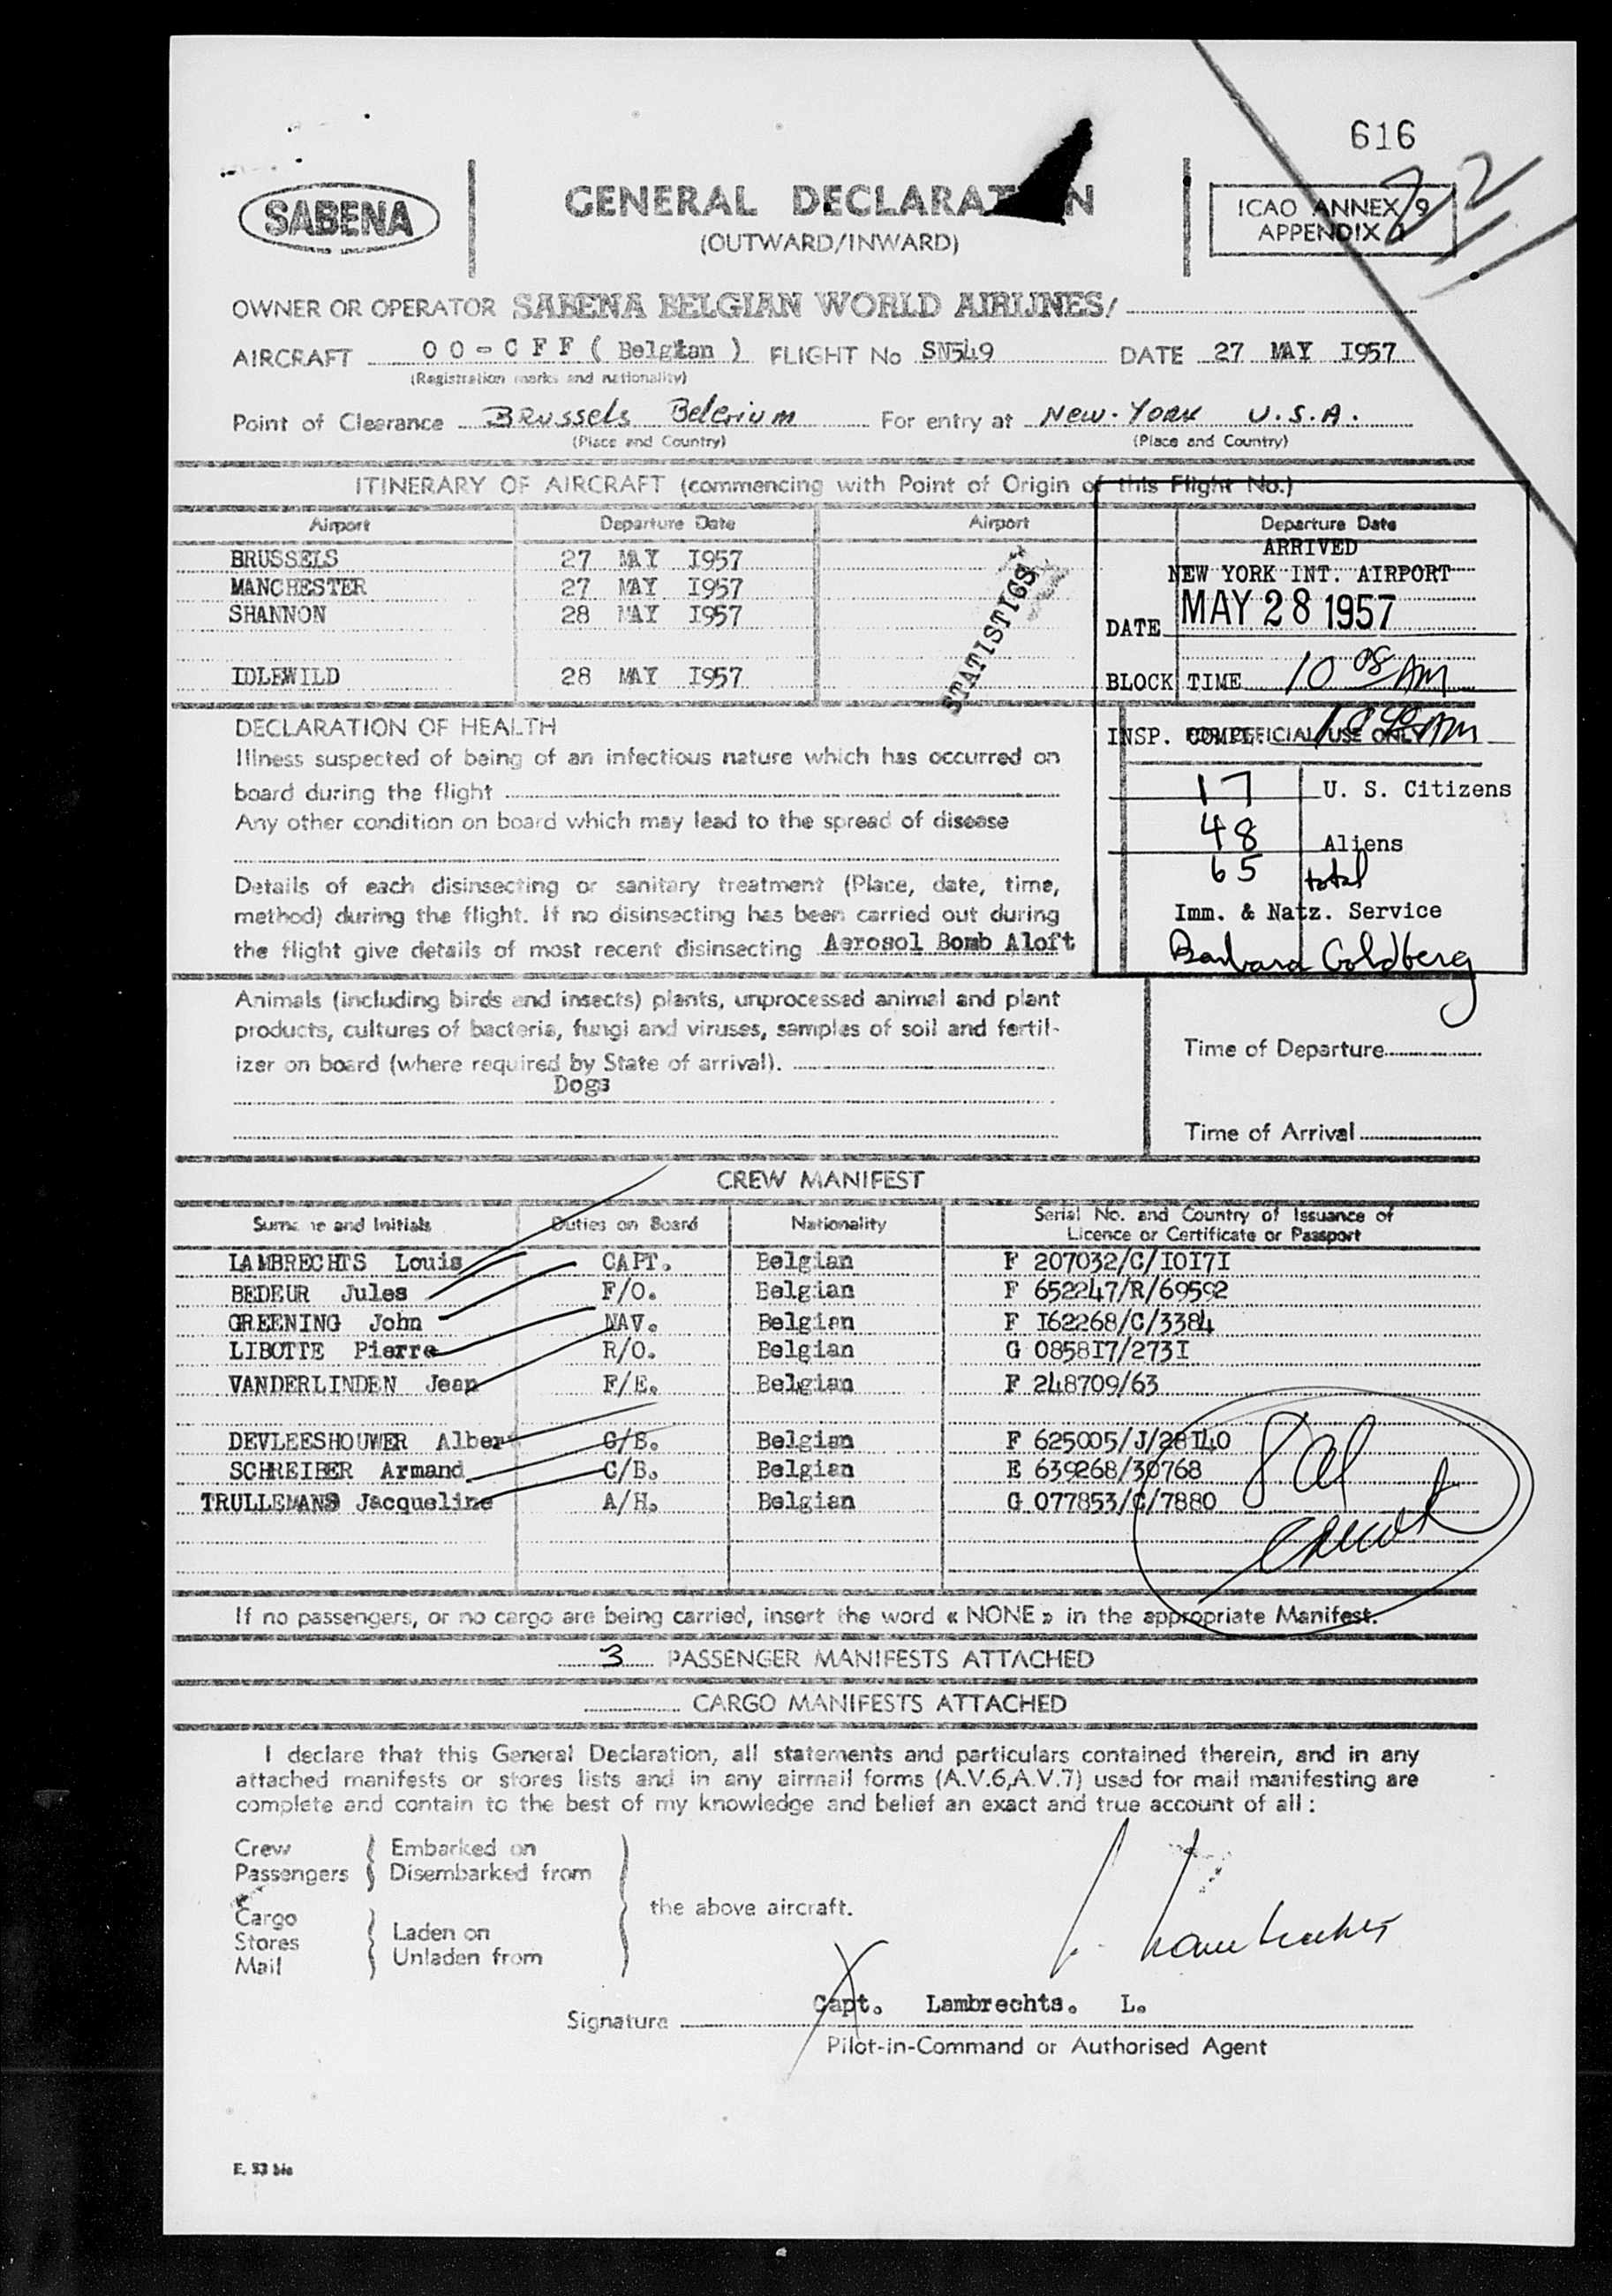 616
22
SABENA
GENERAL DECLARAT N
(OUTWARD/INWARD)
ICAO ANNEX 9
APPENDIX 1
OWNER OR OPERATOR SABENA BELGIAN WORLD AIRLINES/
AIRCRAFT OO-CFF ( Belgian ) FLIGHT No SN549 DATE 27 MAY I957
(Registration marks and nationality)
Point of Clearance Brussels Belgium For entry at New-York U.S.A.
(Place and Country) (Place and Country)
ITINERARY OF AIRCRAFT (commencing with Point of Origin of this Flight No.)
Airport Departure Date Airport Departure Date
BRUSSELS 27 MAY I957
MANCHESTER 27 MAY I957
SHANNON 28 MAY I957
IDLEWILD 28 MAY I957
STATISTICS
ARRIVED
NEW YORK INT. AIRPORT
DATE MAY 28 1957
BLOCK TIME 10 08 AM
INSP. COMPL. AM
FOR OFFICIAL USE ONLY
17 U. S. Citizens
48 Aliens
65 total
Imm. & Natz. Service
Barbara Goldberg
DECLARATION OF HEALTH
Illness suspected of being of an infectious nature which has occurred on
board during the flight
Any other condition on board which may lead to the spread of disease
Details of each disinsecting or sanitary treatment (Place, date, time,
method) during the flight. If no disinsecting has been carried out during
the flight give details of most recent disinsecting Aerosol Bomb Aloft
Animals (including birds and insects) plants, unprocessed animal and plant
products, cultures of bacteria, fungi and viruses, samples of soil and fertil-
izer on board (where required by State of arrival).
Dogs
Time of Departure
Time of Arrival
CREW MANIFEST
Surname and Initials Duties on Board Nationality Serial No. and Country of Issuance of
Licence or Certificate or Passport
LAMBRECHTS Louis CAPT. Belgian F 207032/C/I0I7I
BEDEUR Jules F/O. Belgian F 652247/R/69592
GREENING John NAV. Belgian F I62268/C/3384
LIBOTTE Pierre R/O. Belgian G 0858I7/273I
VANDERLINDEN Jean F/E. Belgian F 248709/63
DEVLEESHOUWER Albert C/B. Belgian F 625005/J/28I40
SCHREIBER Armand C/B. Belgian E 639268/30768
TRULLEMANS Jacqueline A/H. Belgian G 077853/C/7880
If no passengers, or no cargo are being carried, insert the word « NONE » in the appropriate Manifest.
3 PASSENGER MANIFESTS ATTACHED
CARGO MANIFESTS ATTACHED
I declare that this General Declaration, all statements and particulars contained therein, and in any
attached manifests or stores lists and in any airmail forms (A.V.6,A.V.7) used for mail manifesting are
complete and contain to the best of my knowledge and belief an exact and true account of all :
Crew Embarked on
Passengers Disembarked from
the above aircraft.
Cargo
Stores Laden on
Mail Unladen from
Capt. Lambrechts. L.
Signature
Pilot-in-Command or Authorised Agent
E. 53 bis